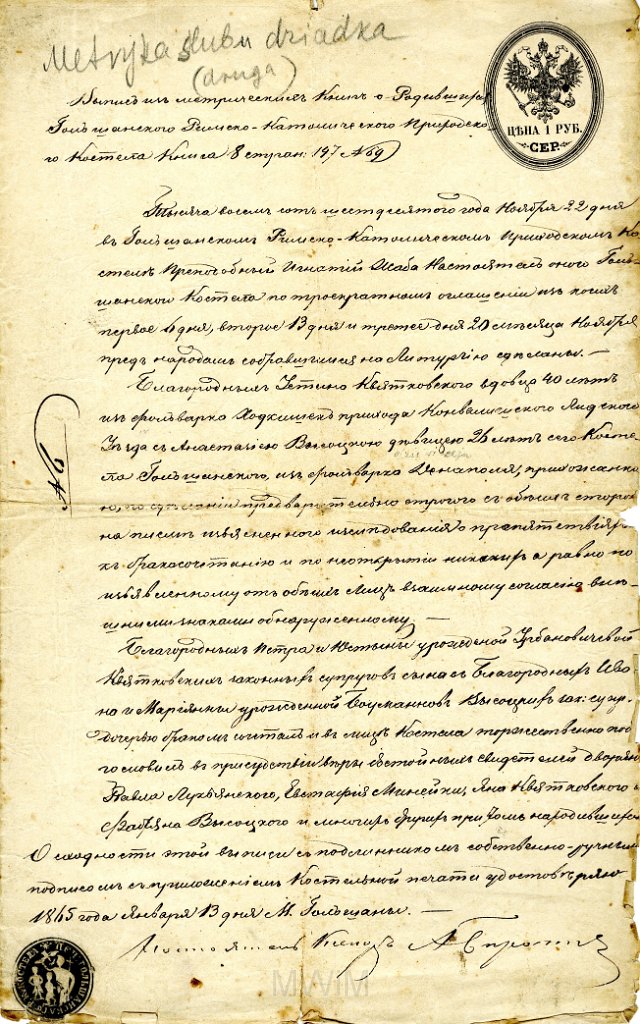 Metryka ślubu dziadka
(druga)
ЦѢНА 1 РУБ.
СЕР.
Выпись изъ метрическихъ Книгъ о Родившихся
Гольшанского Римско-Католического Приходско-
го Костела Книга 8 стран: 197 №69
Тысяча восемь сотъ шестдесятого года Ноября 22 дня
въ Гольшанскомъ Римско-Католическомъ Приходскомъ Ко-
стелѣ Преподобный Игнатій Шаба Настоятель оного Голь-
шанского Костела по троекратномъ оглашеніи изъ коихъ
первое 6 дня, второе 13 дня и третее дня 20 мѣсяца Ноября
предъ народомъ собравшимся на Литургію сдѣланы. —
Благородныхъ Устина Квятковского вдовца 40 лѣтъ
изъ фольварка прихода Конвалишского Лидского
Уѣзда съ Анастасіею Высоцкою дѣвицею 26 лѣтъ сего Косте-
ла Гольшанского, изъ фольварка прихожанко-
ю, по сдѣланіи предварительно строгого съ обѣихъ сторонъ
на письмѣ изъясненного изслѣдованія о препятствіяхъ
къ бракосочетанію и по неоткрытіи никакихъ а равно по
изъявленному отъ обѣихъ лицъ взаимному согласію внѣ-
шними знаками обнаруженному —
№6
Благородныхъ Петра и Юстыны урожденой Урбановичевой
Квятковскихъ законныхъ супруговъ сына съ Благородныхъ Ива-
на и Маріянны урожденной Высоцкихъ зак: супр:
дочерью бракомъ сочеталъ и въ лицѣ Костела торжественно бло-
гословилъ въ присудствіи вѣры достойныхъ свидѣтелей дворянъ
Павла Лукьянского, Евстафія Минейки, Яна Квятковского и
Фабіяна Высоцкого и многихъ другихъ при томъ находившихся
О сходности этой выписи съ подлинникомъ собственно-ручнымъ
подписомъ съ приложеніемъ Костельной печати удостовѣряю
1865 года Января 13 дня М. Гольшаны. —
Настоятель Ксендзъ
MWIM